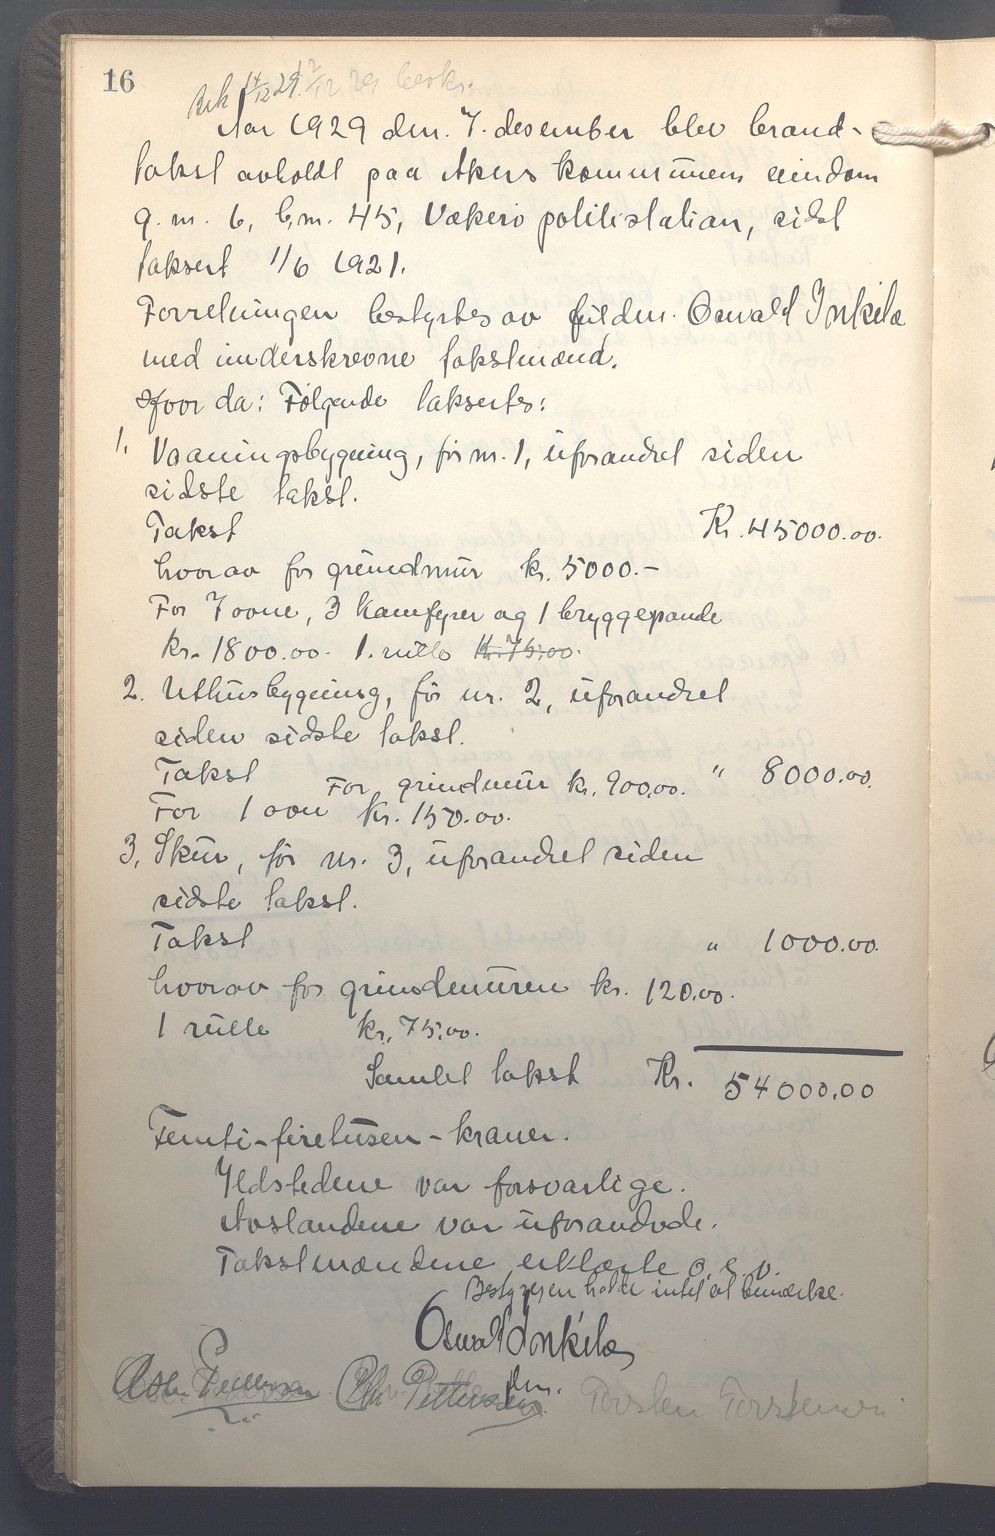 16
Aar 1929 den. 7. desember blev brand-
takst avholdt paa Akers kommunens eiendom
g. nr. 6, b.nr. 45, Vækerø politistation, sidst
taksert 1/6 1921.
Forretningen bestyrtes av fuldm. Oswald Inkila
med underskrevne takstmænd.
Hvor da: Følgende taksertes:
1. Vaaningsbygning, før nr. 1, uforandret siden
sidste takst.
Takst Kr. 45000.00.
hvorav for grundmur kr. 5000.-
For 7 ovne, 3 kamfyrer og 1 bryggepande
kr. 1800.00. 1. rulle kr. 75.00.
2. Uthusbygning, før nr. 2, uforandret
siden sidste takst.
Takst For grundmur kr. 900.00. " 8000.00.
For 1 ovn kr. 150.00.
3. Skur, før nr. 3, uforandret siden
sidste takst.
Takst " 1000.00.
hvorav for grundmuren kr. 120.00.
1 rulle kr. 75.00.
Samlet takst Kr. 54000.00
Femti-firetusen-kroner.
Ildstedene var forsvarlige.
Avstandene var uforandrede.
Takstmændene erklærte o. s. v.
Bestyreren hadde intet at bemærke.
Oswald Inkila
Chr. Pettersen Torsten Torstensen